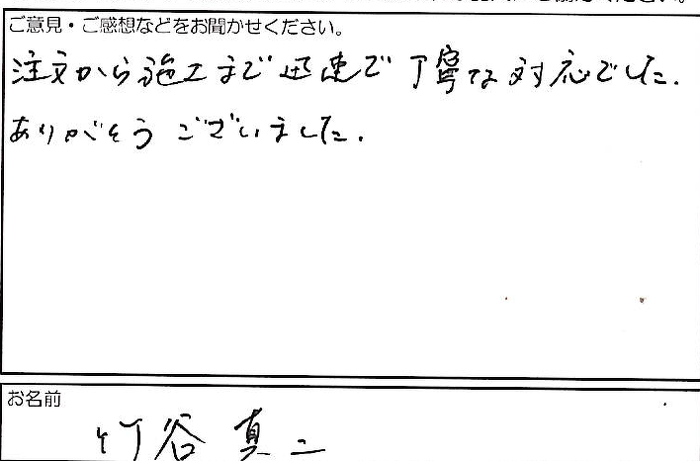 ご意見・ご感想などをお聞かせください。
注文から施工まで迅速で丁寧な対応でした.
ありがとうございました.
お名前
竹谷 真二